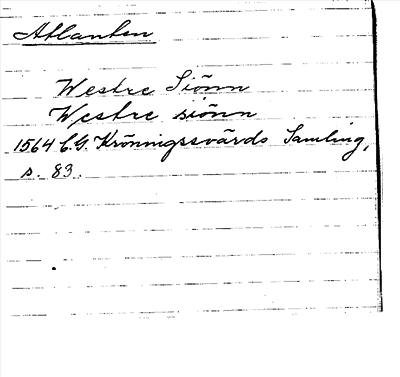 Atlanten
Westre Siönn
Westre siönn
1564 C.G. Krönnigssvärds Samling,
s. 83.